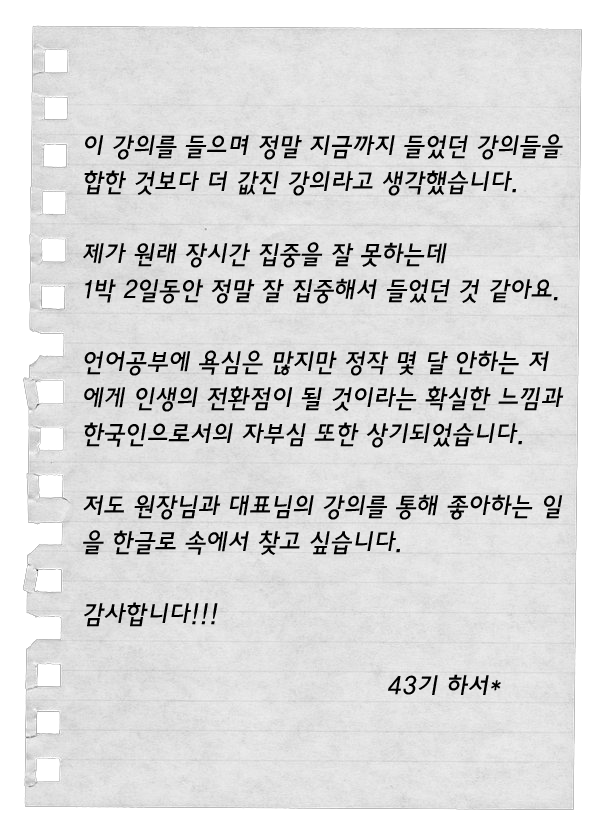 이 강의를 들으며 정말 지금까지 들었던 강의들을
합한 것보다 더 값진 강의라고 생각했습니다.
제가 원래 장시간 집중을 잘 못하는데
1박 2일동안 정말 잘 집중해서 들었던 것 같아요.
언어공부에 욕심은 많지만 정작 몇 달 안하는 저
에게 인생의 전환점이 될 것이라는 확실한 느낌과
한국인으로서의 자부심 또한 상기되었습니다.
저도 원장님과 대표님의 강의를 통해 좋아하는 일
을 한글로 속에서 찾고 싶습니다.
감사합니다!!!
43기 하서*